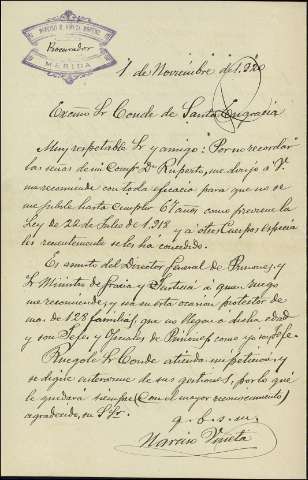 Procurador
MERIDA
1 de Noviembre de 1.920
Excmo Sr Conde de Santa Engracia
Muy respetable Sr y amigo: Por no recordar
las señas de mi Compº Dn Ruperto, me dirijo á V.
me recomiende con toda eficacia para que no se
me jubile hasta cumplir 67 años como previene la
Ley de 22 de Julio de 1.918 y á otros Cuerpos especia
les recientemente se les ha concedido.
Es asunto del Director General de Prisiones, y
Sr Ministro de Gracia y Justicia á que, ruego
me recomiende, y sea en esta ocasion protector de
mas de 128 familias, que no llegan á dicha edad
y son Jefes y Oficiales de Prisiones como yo
Ruegole Sr Conde atienda mi peticion, y
se digne enterarme de sus gestiones, por lo que
le quedará siempre (con el mayor reconocimiento)
agradecido, su S. S.
q. b. s. m.
Narciso